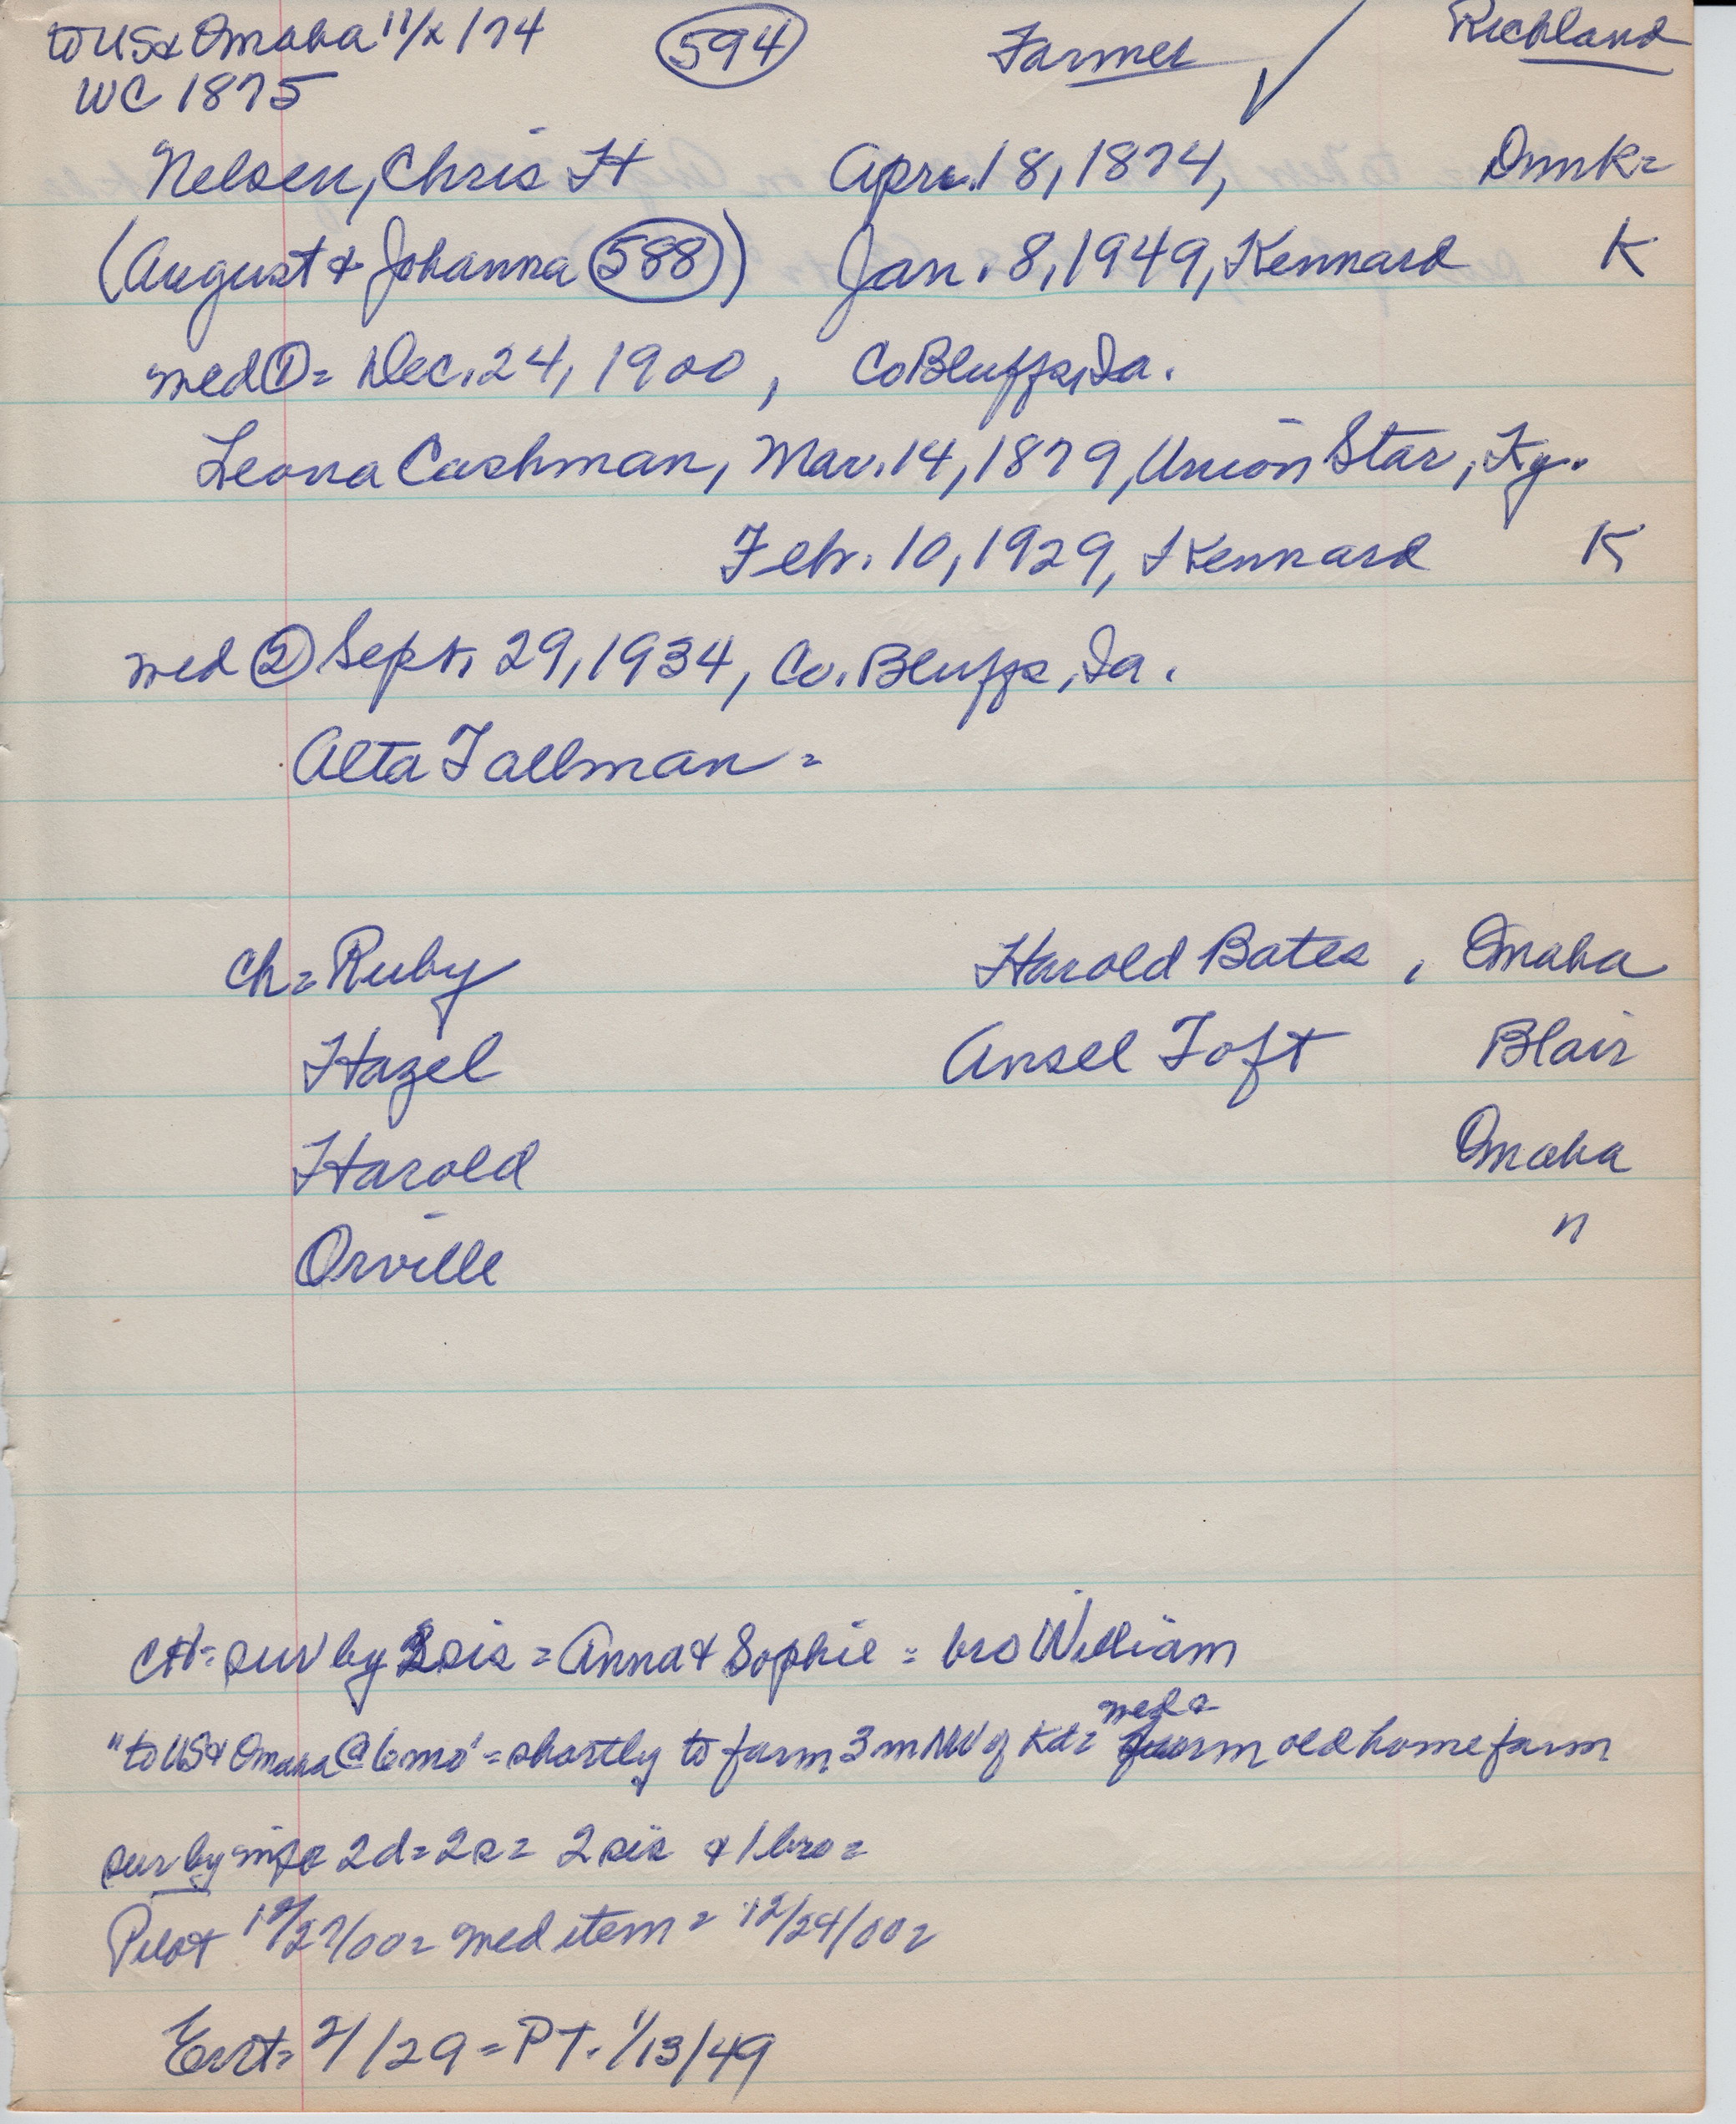 to US & Omaha 11/x/74 594 Farmer ✓ Richland
WC 1875
Nelsen, Chris H Apr. 18, 1874, Dnmk=
(August & Johanna 588) Jan. 8, 1949, Kennard K
med 1 = Dec. 24, 1900, Co Bluffs, Ia.
Leona Cashman, Mar. 14, 1879, Union Star, Ky.
Feb. 10, 1929, Kennard K
med 2 Sept. 29, 1934, Co. Bluffs, Ia.
Alta Tallman =
ch = Ruby Harold Bates, Omaha
Hazel Ansel Toft Blair
Harold Omaha
Orville "
CH = sur by 2 sis = Anna & Sophie = bro William
med &
"to US & Omaha @ 6 mo" = shortly to farm 3 m NW of Kd = on old home farm
sur by wife 2d = 2s = 2 sis & 1 bro =
Pilot 12/27/00 = med item = 12/24/00 =
Ent = 2/ /29 = PT. 1/13/49